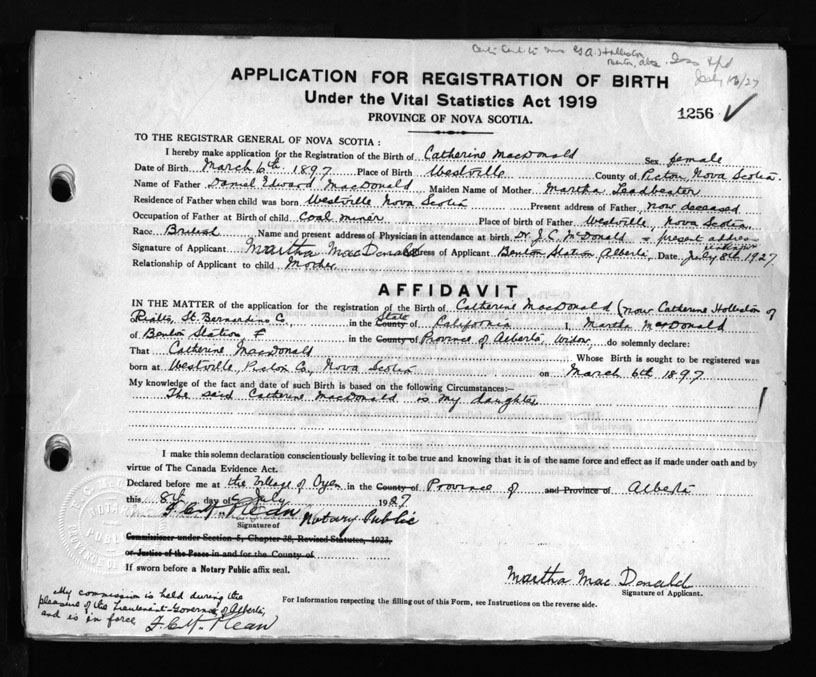 July 16/27
APPLICATION FOR REGISTRATION OF BIRTH
Under the Vital Statistics Act 1919
PROVINCE OF NOVA SCOTIA.
1256
TO THE REGISTRAR GENERAL OF NOVA SCOTIA:
I hereby make application for the Registration of the Birth of Catherine MacDonald Sex female
Date of Birth March 6th 1897 Place of Birth Westville County of Pictou, Nova Scotia
Name of Father Daniel Edward MacDonald Maiden Name of Mother Martha Leadbeater
Residence of Father when child was born Westville Nova Scotia Present address of Father now deceased
Occupation of Father at Birth of child Coal miner Place of birth of Father Westville, Nova Scotia
Race British Name and present address of Physician in attendance at birth Dr J.C. McDonald present address unknown
Signature of Applicant Martha MacDonald Address of Applicant Benton Station, Alberta, Date July 8th 1927
Relationship of Applicant to child Mother
AFFIDAVIT
IN THE MATTER of the application for the registration of the Birth of Catherine MacDonald (now Catherine Holleston of
Rialto, St. Bernardino Co., in the County of State California I, Martha MacDonald
of Benton Station in the County of Province of Alberta, Widow, do solemnly declare:
That Catherine MacDonald Whose Birth is sought to be registered was
born at Westville, Pictou Co., Nova Scotia on March 6th 1897
My knowledge of the fact and date of such Birth is based on the following Circumstances:—
The said Catherine MacDonald is my daughter
I make this solemn declaration conscientiously believing it to be true and knowing that it is of the same force and effect as if made under oath and by
virtue of The Canada Evidence Act.
Declared before me at the Village of Oyen in the County of Province of and Province of Alberta
this 8th day of July 1927
Notary Public
Signature of
Commissioner under Section 5, Chapter 38, Revised Statutes, 1923,
or Justice of the Peace in and for the County of
If sworn before a Notary Public affix seal.
Martha MacDonald
Signature of Applicant.
My commission is held during the
pleasure of the Lieutenant-Governor of Alberta,
and is in force
For Information respecting the filling out of this Form, see Instructions on the reverse side.